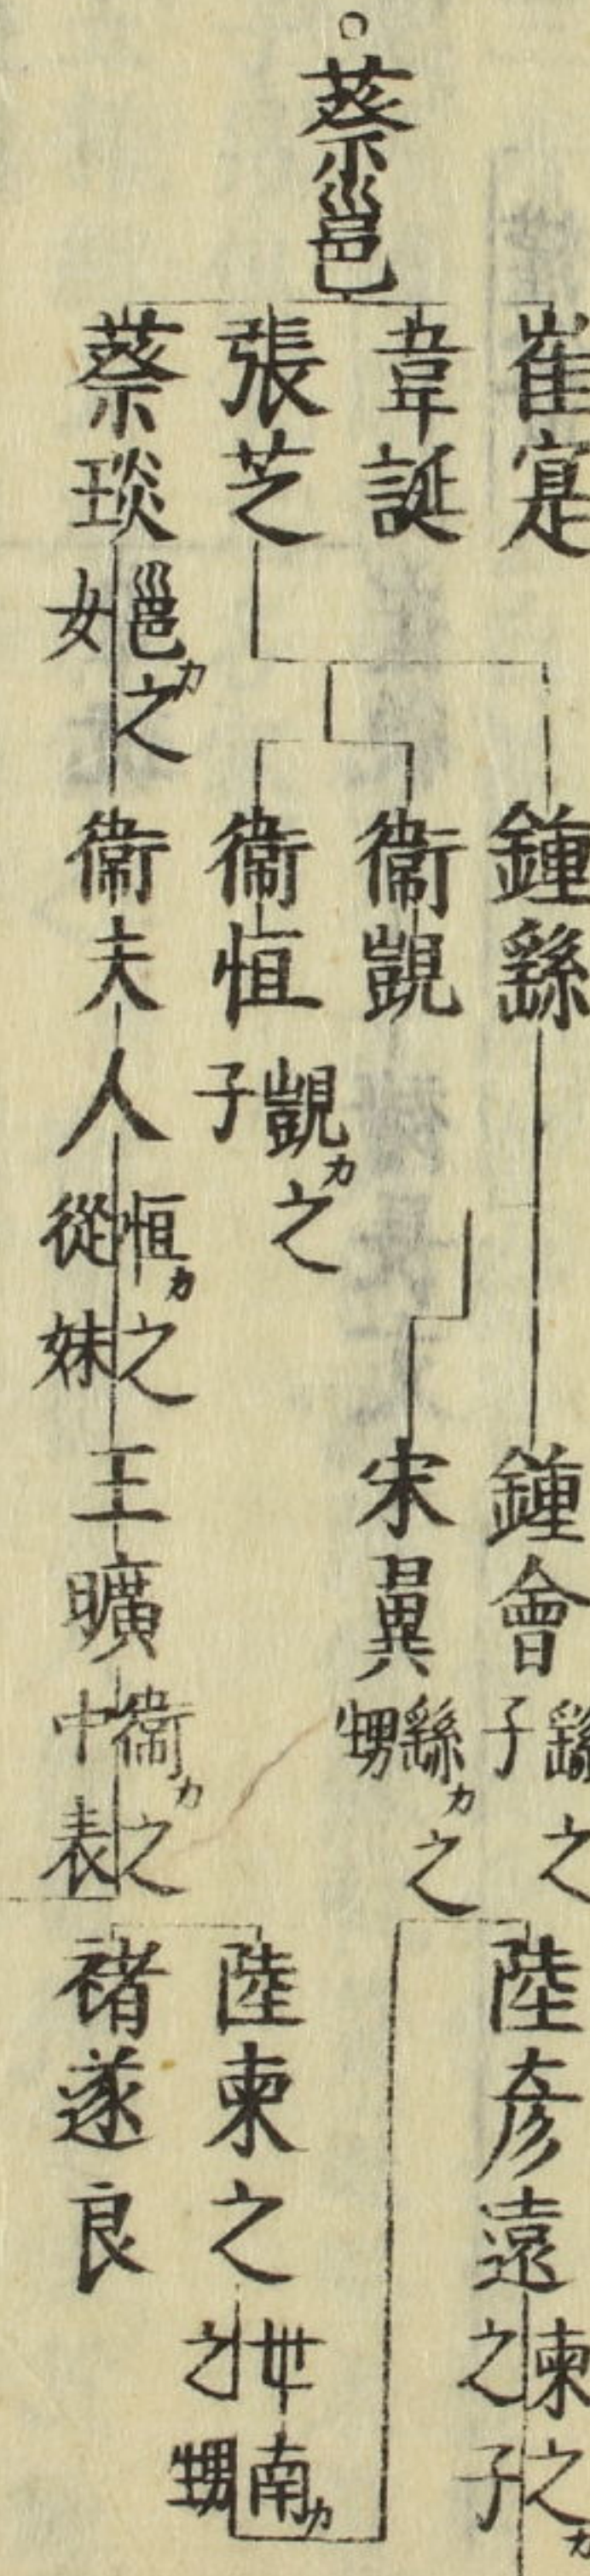 蔡邕
崔寔
韋誕
張芝
蔡琰 邕カ之女
鍾繇
衞覬
衞恒 覬カ之子
衞夫人 恒カ之從妹
鍾會 繇之子
宋翼 繇カ之甥
王曠 衞カ之中表
陸彦遠 柬之カ之子
陸柬之 世南カ之甥
褚遂良